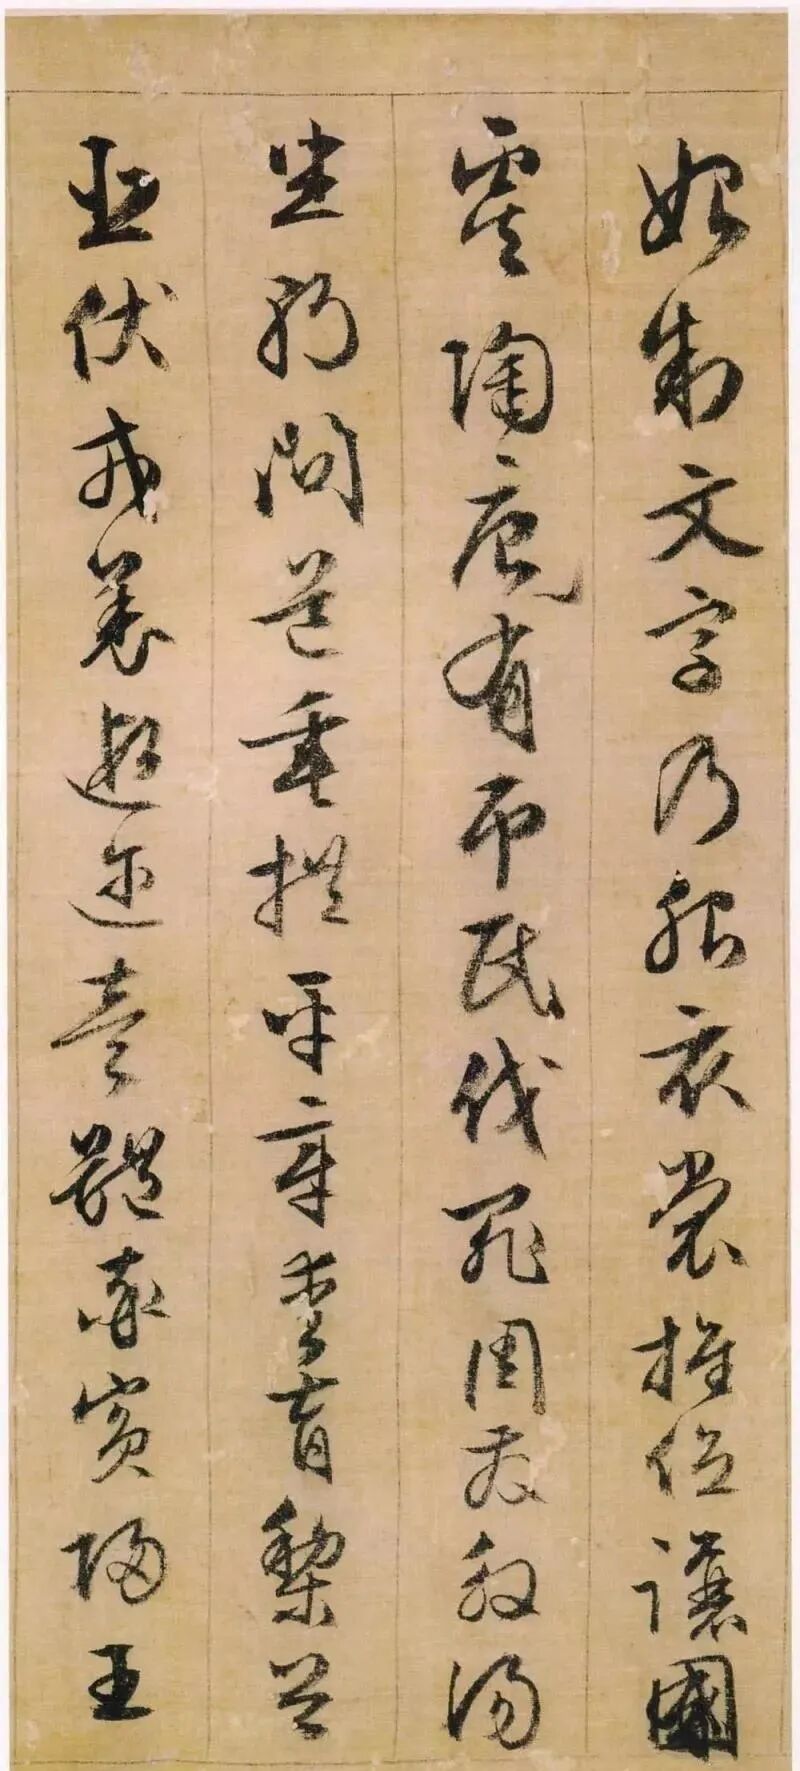 始制文字乃服衣裳推位讓國
虞陶唐有吊民伐罪周發殷湯
坐朝問道垂拱平章愛育黎首
臣伏戎羌遐迩壹體率賓歸王